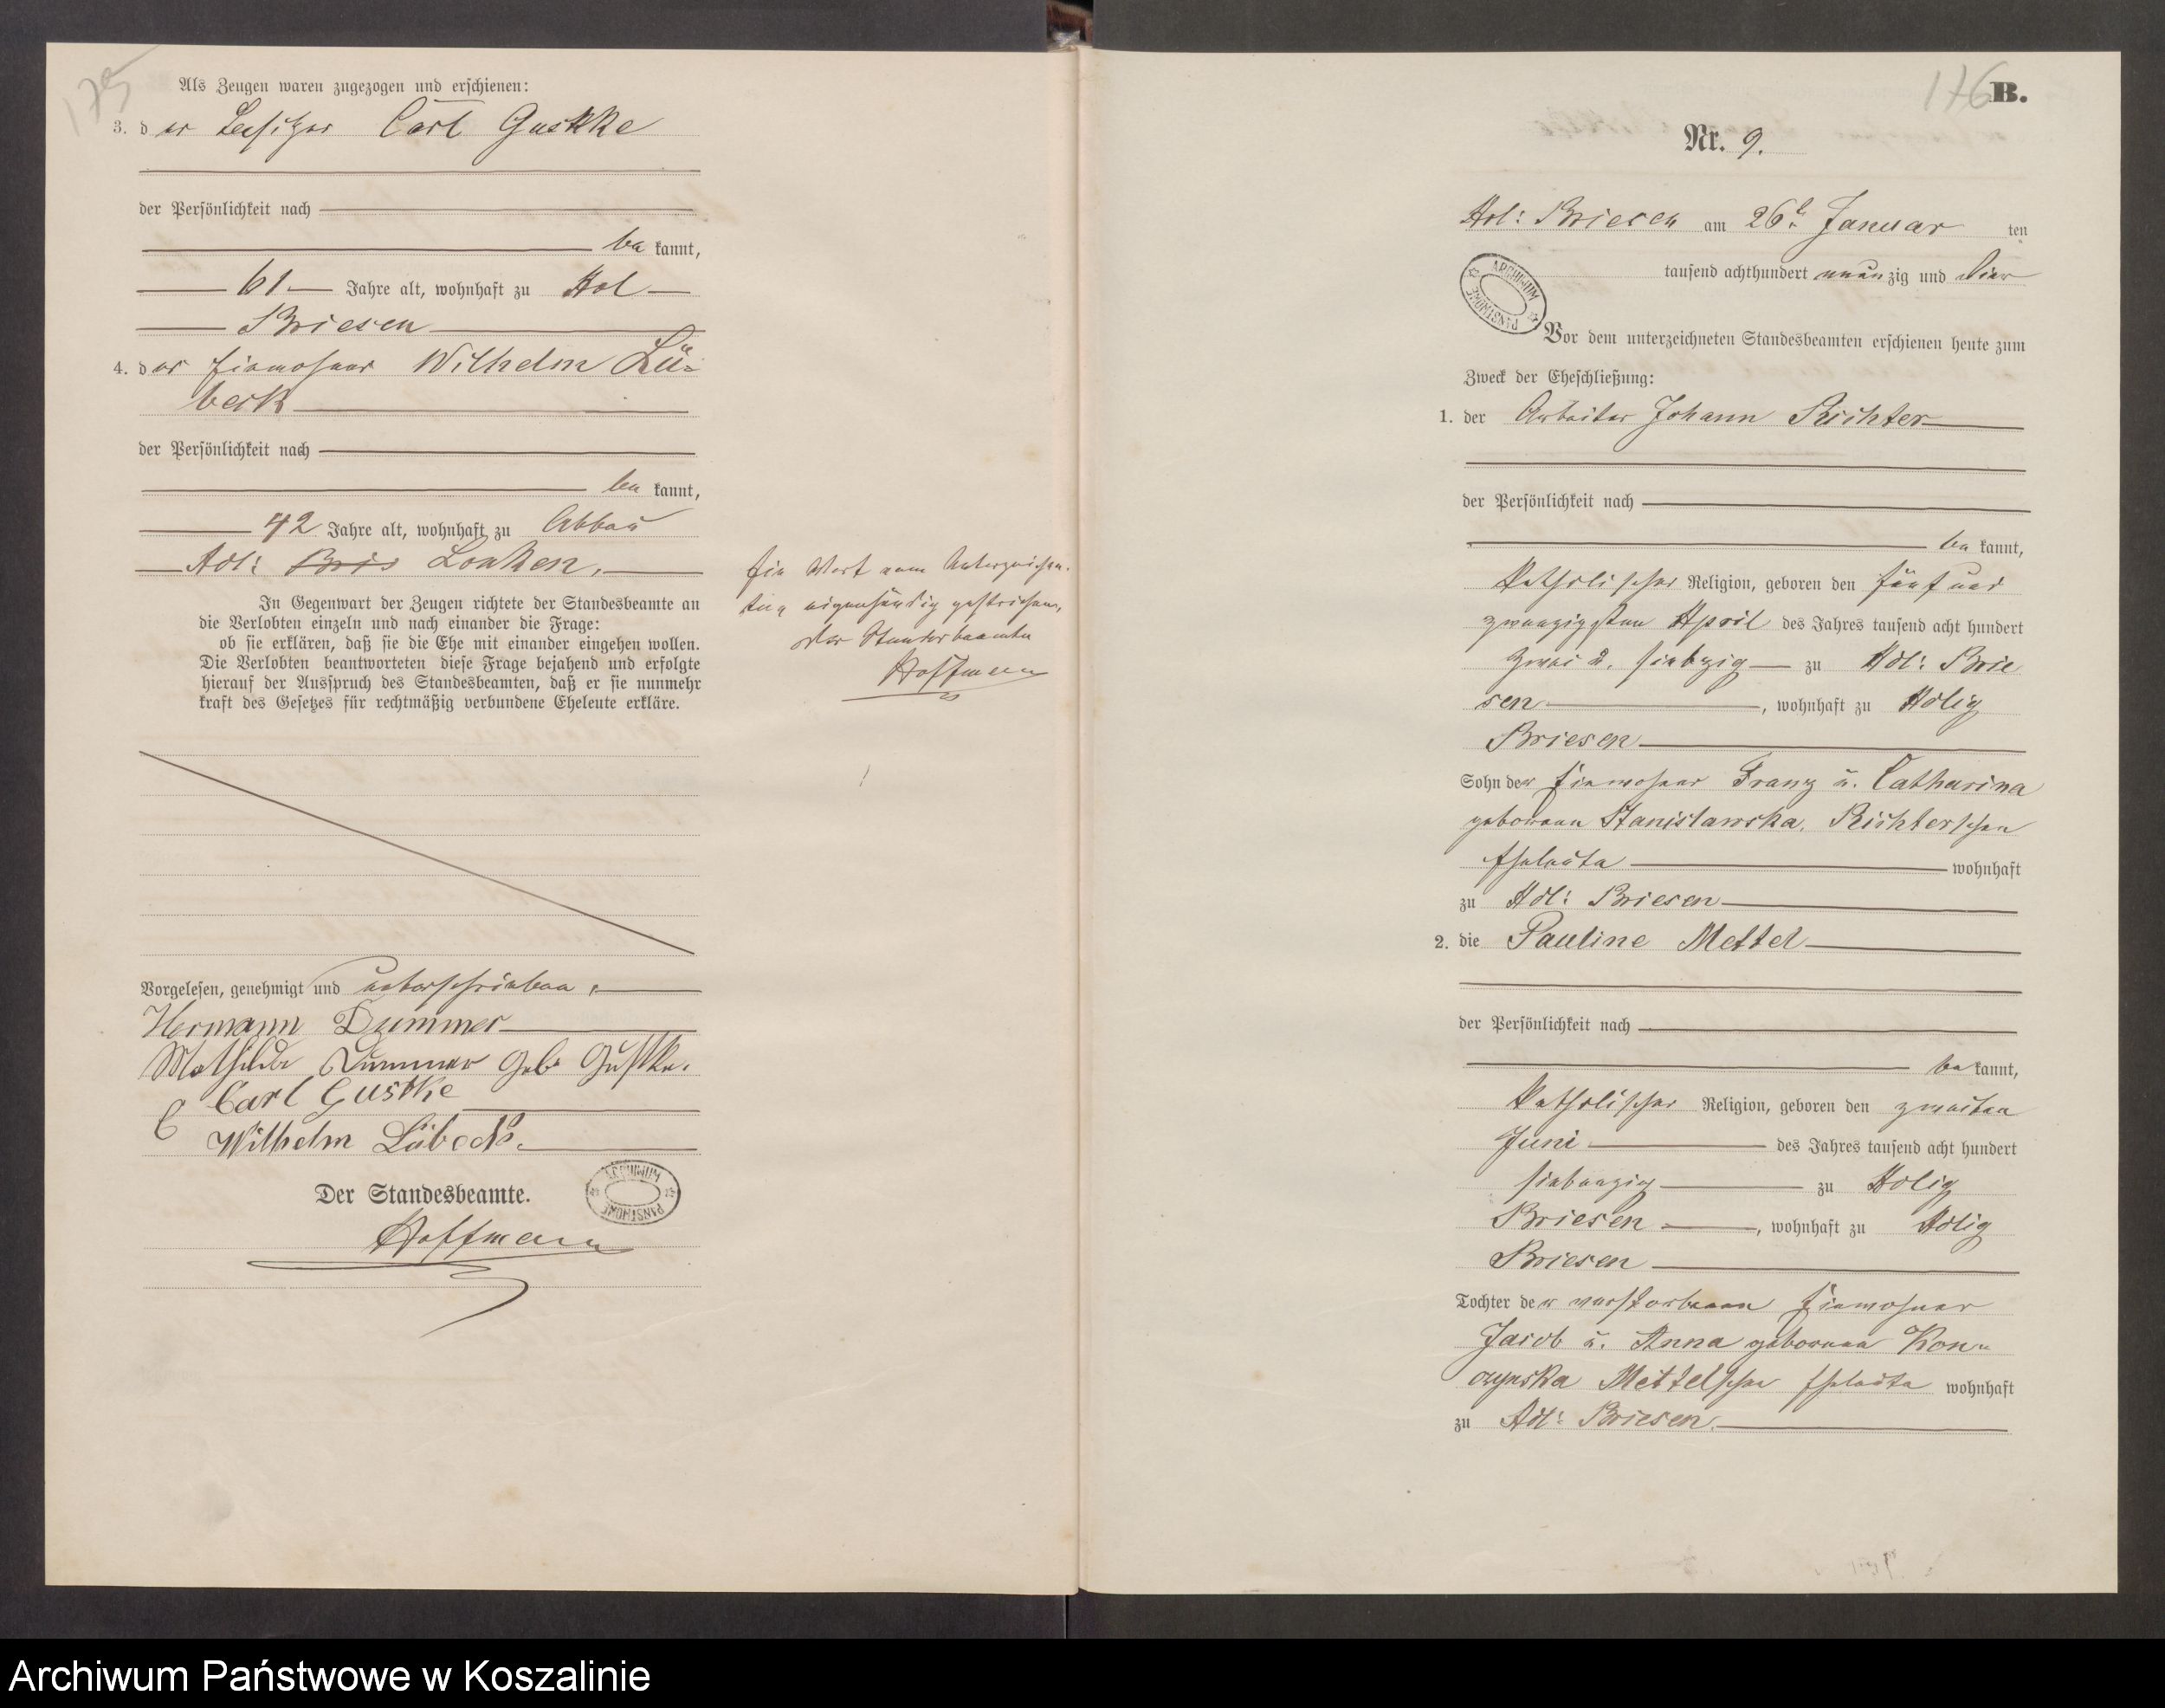 175
Als Zeugen waren zugezogen und erschienen:
3. der Besitzer Carl Gustke
der Persönlichkeit nach
be kannt,
61 Jahre alt, wohnhaft zu Adl
Briesen
4. der Einwohner Wilhelm Lü-
beck
der Persönlichkeit nach
be kannt,
42 Jahre alt, wohnhaft zu Abbau
Adl: Bris Loaken,
In Gegenwart der Zeugen richtete der Standesbeamte an
die Verlobten einzeln und nach einander die Frage:
ob sie erklären, daß sie die Ehe mit einander eingehen wollen.
Die Verlobten beantworteten diese Frage bejahend und erfolgte
hierauf der Ausspruch des Standesbeamten, daß er sie nunmehr
kraft des Gesetzes für rechtmäßig verbundene Eheleute erkläre.
Ein Wort vom
eigenhändig gestrichen,
der Standesbeamte
Hoffmann
Vorgelesen, genehmigt und unterschrieben.
Hermann Dummer
Mathilde Dummer geb. Gustke.
Carl Gustke
Wilhelm Lübeck.
Der Standesbeamte.
ARCHIWUM PAŃSTWOWE
Hoffmann
176 B.
Nr. 9.
Adl: Briesen am 26t Januar ten
tausend achthundert neunzig und vier
ARCHIWUM PAŃSTWOWE
Vor dem unterzeichneten Standesbeamten erschienen heute zum
Zweck der Eheschließung:
1. der Arbeiter Johann Richter
der Persönlichkeit nach
be kannt,
katholischer Religion, geboren den fünf und
zwanzigsten April des Jahres tausend acht hundert
zwei u. siebzig zu Adl: Brie
sen, wohnhaft zu Adlig
Briesen
Sohn der Einwohner Franz u. Catharina
geborenen Stanislawska, Richterschen
Eheleute wohnhaft
zu Adl: Briesen
2. die Pauline Mettel
der Persönlichkeit nach
be kannt,
katholischer Religion, geboren den zweiten
Juni des Jahres tausend acht hundert
siebenzig zu Adlig
Briesen, wohnhaft zu Adlig
Briesen
Tochter der verstorbenen Einwohner
Jacob u. Anna geborenen Kon-
czynska Mettelschen Eheleute wohnhaft
zu Adl: Briesen.
Archiwum Państwowe w Koszalinie